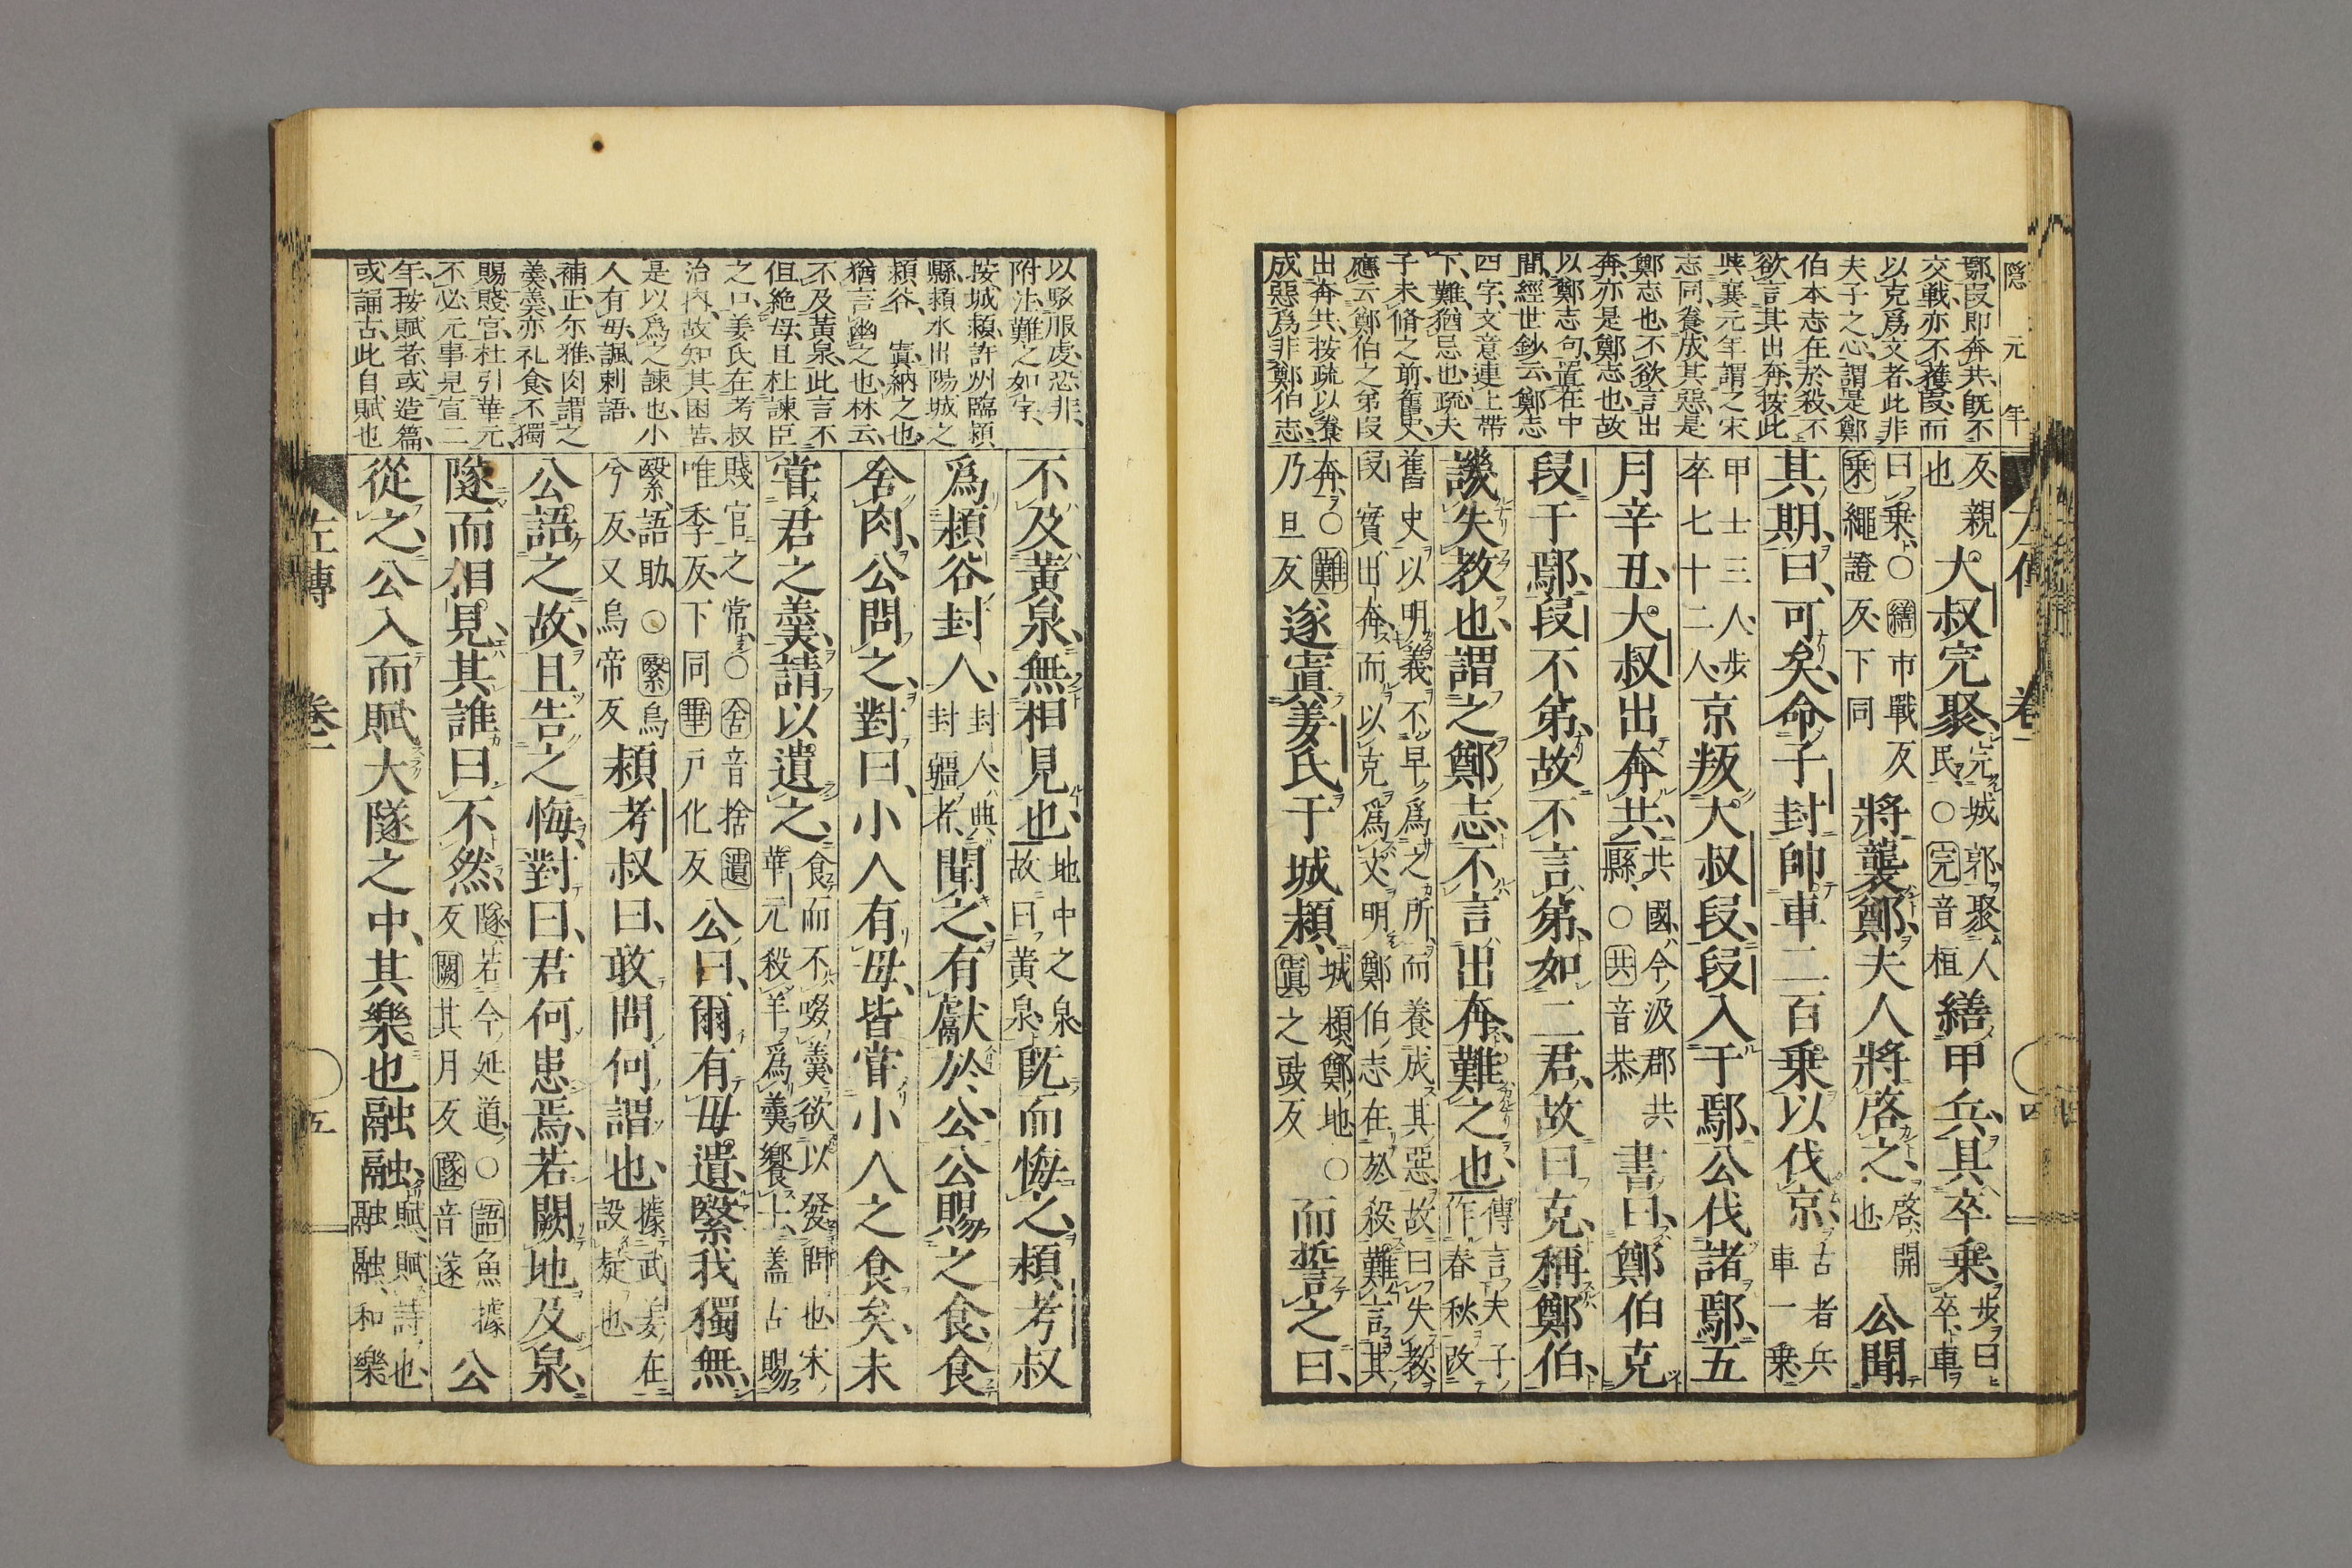 隱元年
鄢段即奔共既不
交戰亦不獲段而
以克爲文者此非
夫子之心謂是鄭
伯本志在於殺不
欲言其出奔按此
與襄元年謂之宋
志同養成其惡是
鄭志也不欲言出
奔亦是鄭志也故
以鄭志句置在中
間經世鈔云鄭志
四字文意連上帶
下難猶忌也疏夫
子未脩之前舊史
應云鄭伯之弟段
出奔共按疏以養
成惡爲非鄭伯志
左傳 卷一 四
反親
也
大叔完聚
完城郭聚人
民○完音桓
繕甲兵具卒乘
步曰
卒車
曰乘○繕市戰反
乘繩證反下同
將襲鄭夫人將啓之
啓開
也
公聞
其期曰可矣命子封帥車二百乘以伐京
古者兵
車一乘
甲士三人步
卒七十二人
京叛大叔段段入于鄢公伐諸鄢五
月辛丑大叔出奔共
共國今汲郡共
縣○共音恭
書曰鄭伯克
段于鄢段不弟故不言弟如二君故曰克稱鄭伯
譏失教也謂之鄭志不言出奔難之也
傳言夫子
作春秋改
舊史以明義不早爲之所而養成其惡故曰失教
段實出奔而以克爲文明鄭伯志在於殺難言其
奔○難
乃旦反
遂寘姜氏于城潁
城潁鄭地○
寘之豉反
而誓之曰
以駁服虔恐非
附注難之如字
按城潁許州臨潁
縣潁水出陽城之
潁谷 寘納之也
猶言幽之也林云
不及黃泉此言不
但絶母且杜諫臣
之口姜氏在考叔
治内故知其困苦
是以爲之諫也小
人有母諷刺語
補正尓雅肉謂之
羹羹亦礼食不獨
賜賤官杜引華元
不必元事見宣二
年按賦者或造篇
或誦古此自賦也
不及黃泉無相見也
地中之泉
故曰黃泉
既而悔之潁考叔
爲潁谷封人
封人典
封疆者
聞之有獻於公公賜之食食
舍肉公問之對曰小人有母皆嘗小人之食矣未
嘗君之羹請以遺之
食而不啜羹欲以發問也宋
華元殺羊爲羹饗士蓋古賜
賤官之常○舍音捨遺
唯季反下同華戶化反
公曰爾有母遺繄我獨無
繄語助○繄烏
兮反又烏帝反
潁考叔曰敢問何謂也
據武姜在
設疑也
公語之故且告之悔對曰君何患焉若闕地及泉
隧而相見其誰曰不然
隧若今延道○語魚據
反闕其月反隧音遂
公
從之公入而賦大隧之中其樂也融融
賦賦詩也
融融和樂
左傳 卷一 五